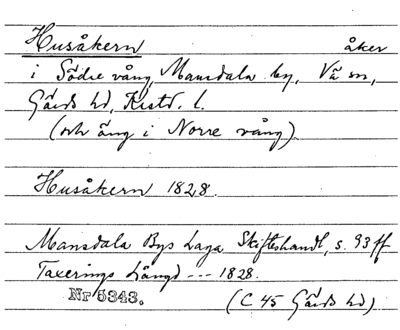 Husåkern åker
i Södre vång, Mansdala by, Vä sn,
Gärds hd, Kristd. l.
(och äng i Norre vång)
Husåkern 1828.
Mansdala Bys Laga Skifteshandl, s. 93 ff
Taxerings Längd --- 1828.
Nr 5343. (C 45 Gärds hd)